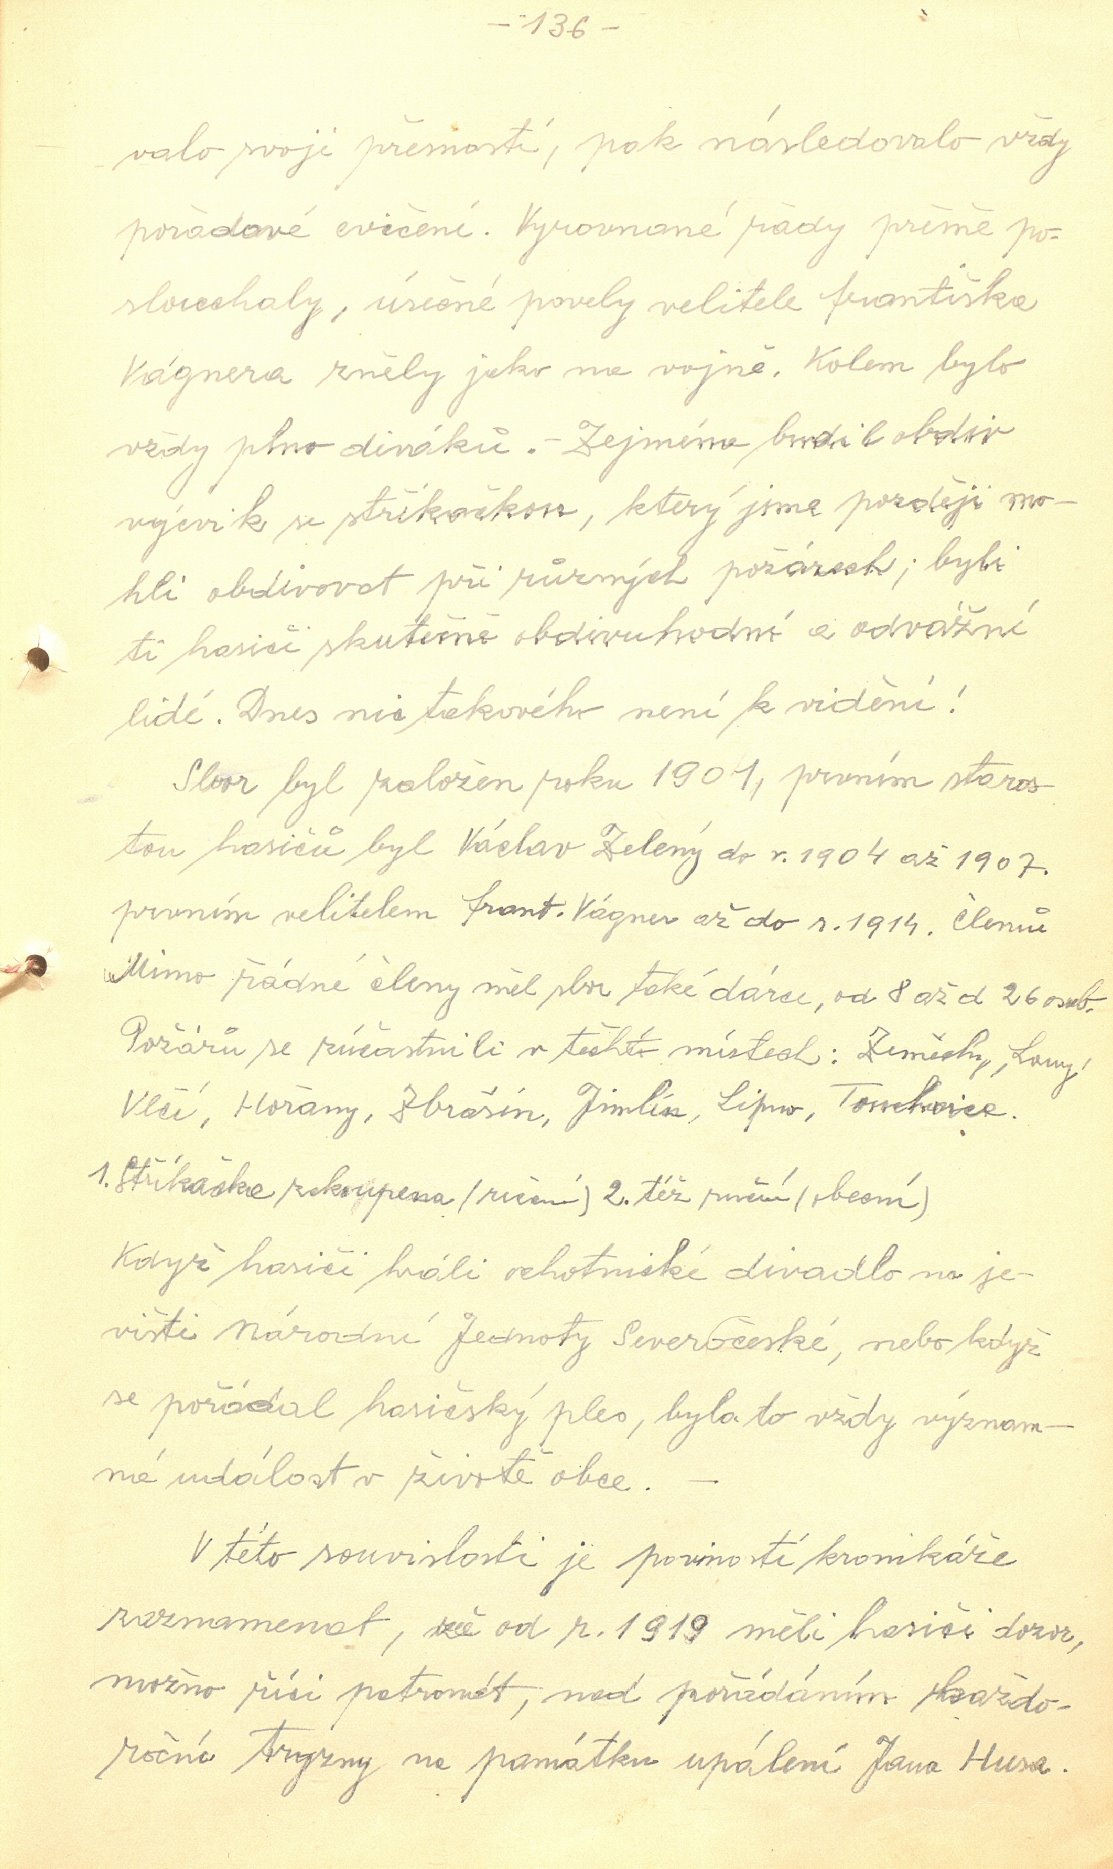 - 136 -
valo svoji přesností, pak následovalo vždy
pořadové cvičení. Vyrovnané řady přímě po-
slouchaly, úsečné povely velitele Františka
Vágnera zněly jako na vojně. Kolem bylo
vždy plno diváků. - Zejména budil obdiv
výcvik se stříkačkou, který jsme později mo-
hli obdivovat při různých požárech; byli
ti hasiči skutečně obdivuhodní a odvážní
lidé. Dnes nic takového není k vidění!
Sbor byl založen roku 1901, prvním staros-
tou hasičů byl Václav Zelený do r. 1904 až 1907.
prvním velitelem Frant. Vágner až do r. 1914. Členů
Mimo řádné členy měl sbor také dárce, od 8 až d 26 osob.
Požárů se zúčastnili v těchto místech: Zeměchy, Louny,
Vlčí, Hořany, Zbrašín, Jimlín, Lipno, Touchovice.
1. Stříkačka zakoupena (ruční) 2. též ruční (obecní)
Když hasiči hráli ochotnické divadlo na je-
višti Národní Jednoty Severočeské, nebo když
se pořádal hasičský ples, byla to vždy význam-
ná událost v životě obce. -
V této souvislosti je povinností kronikáře
zaznamenat, že od r. 1919 měli hasiči dozor,
možno říci patronát, nad pořádáním každo-
roční tryzny na památku upálení Jana Husa.